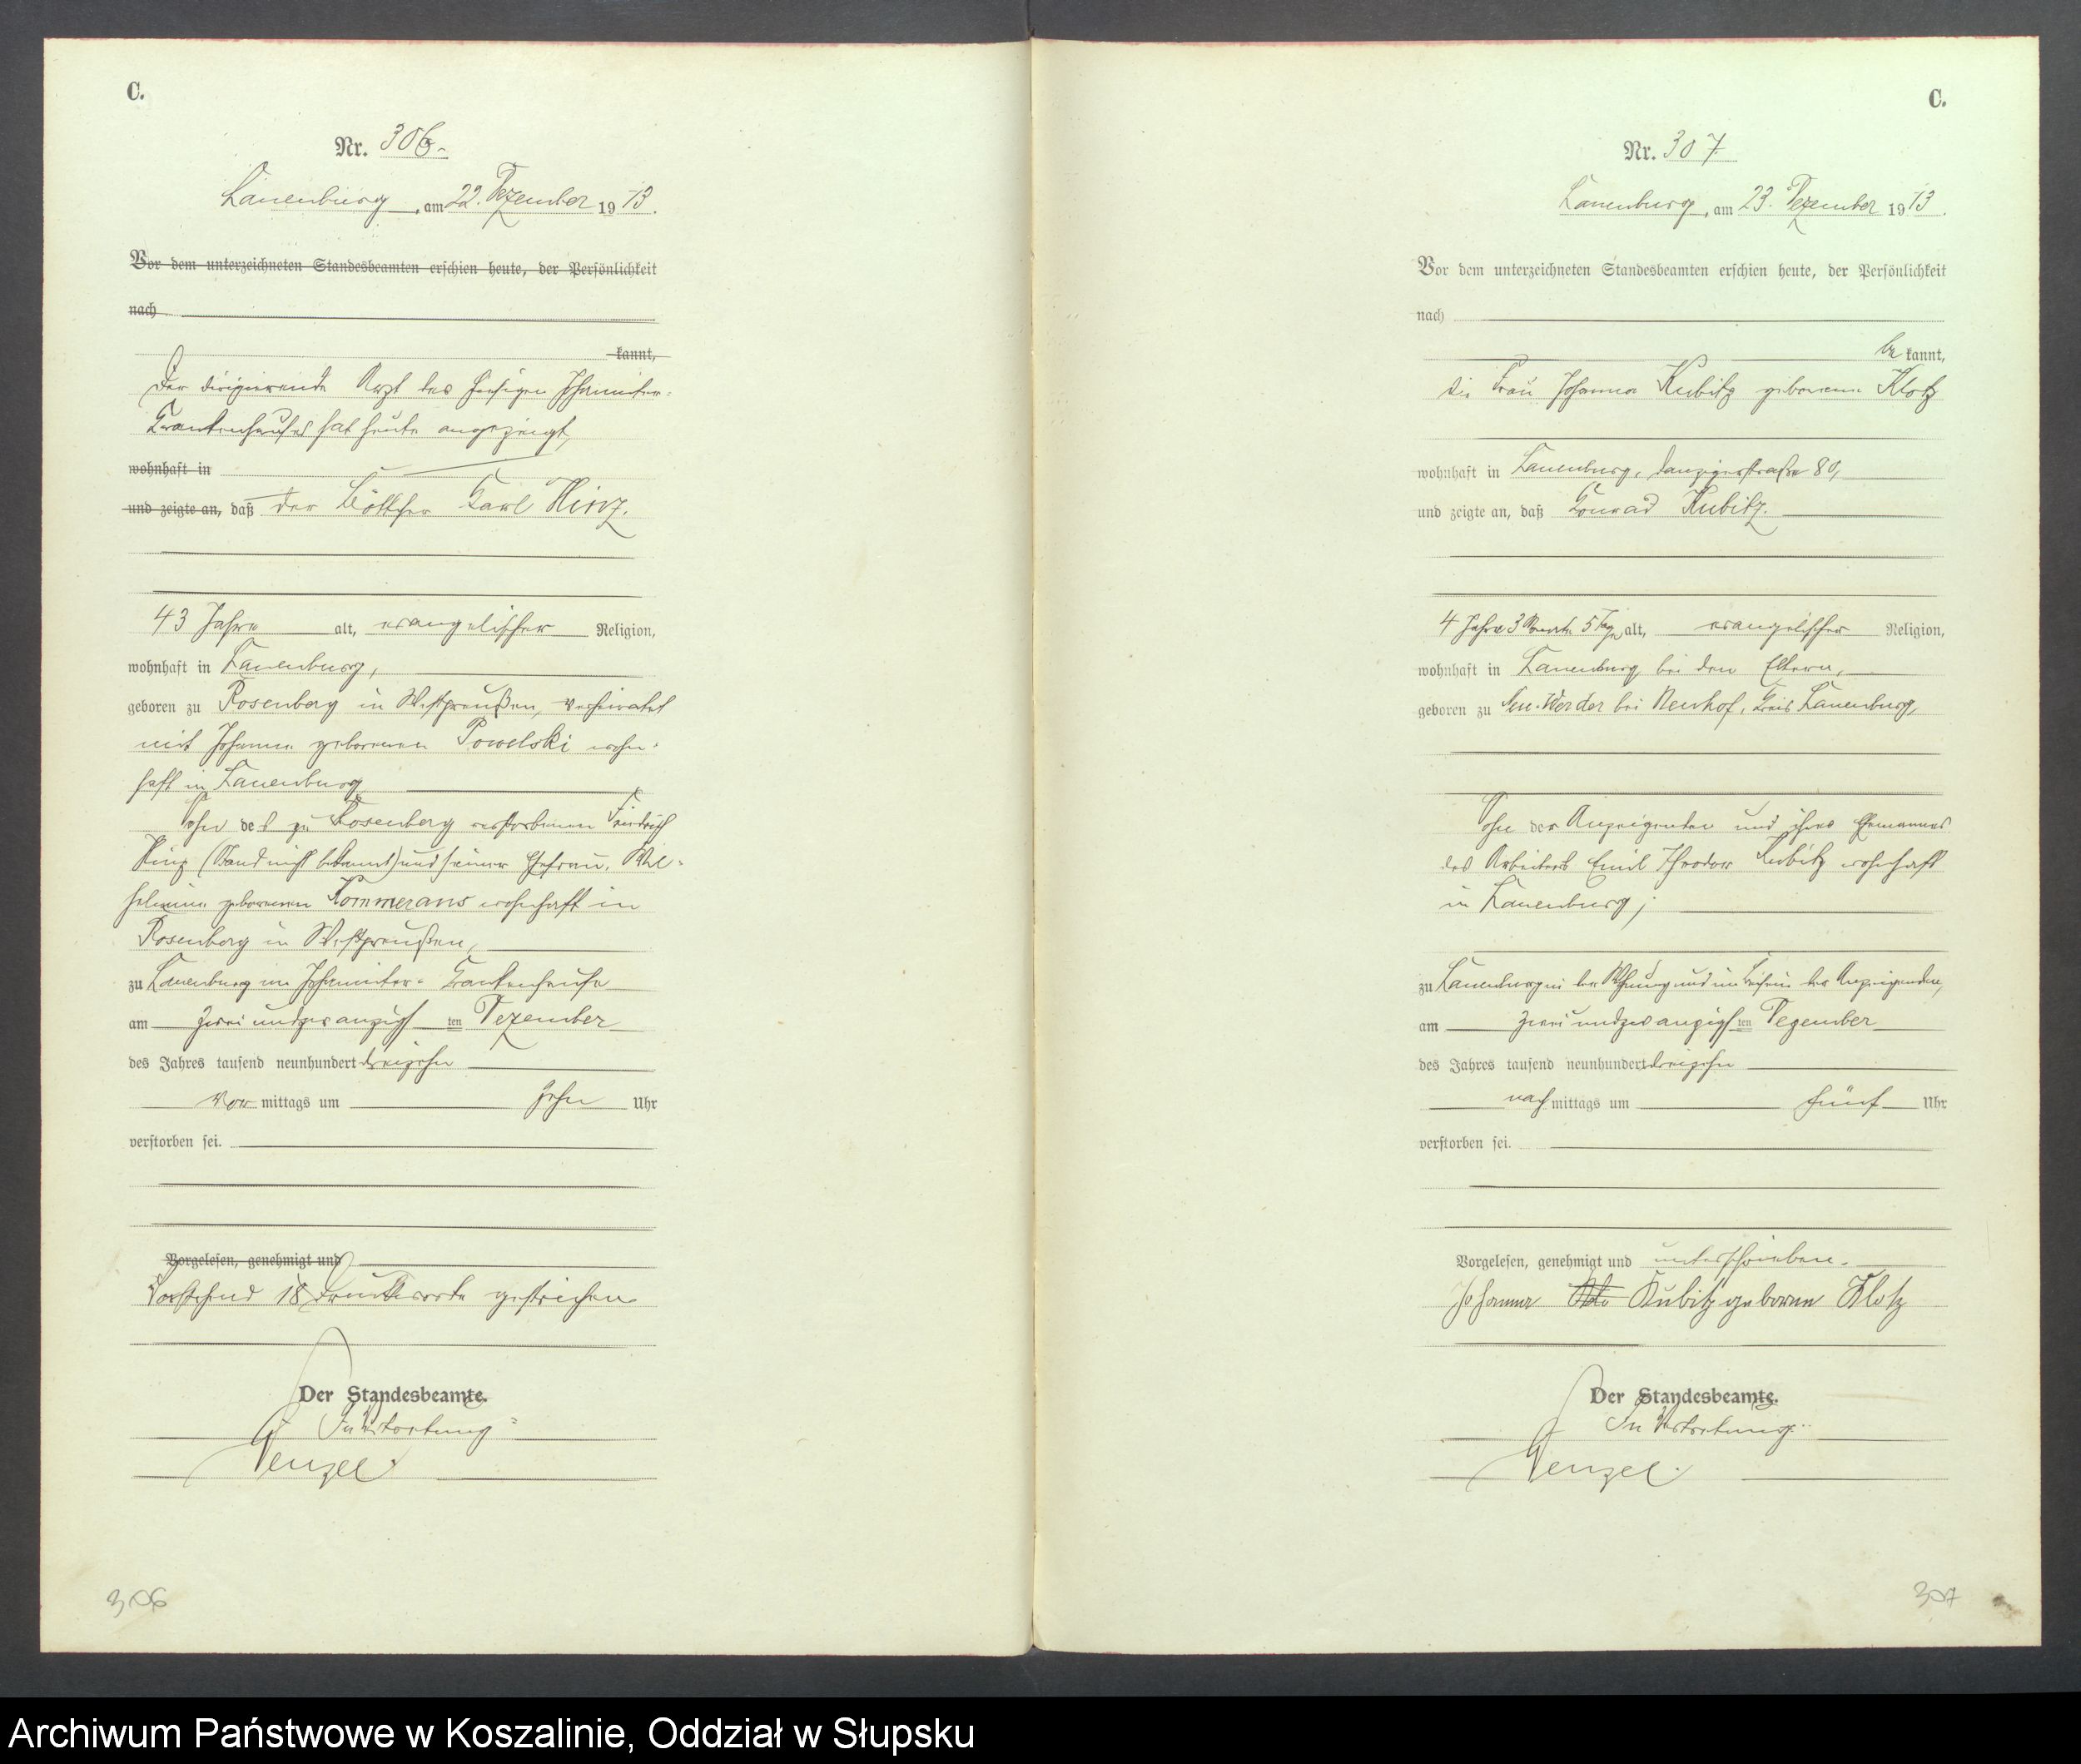 C.
Nr. 306.
Lauenburg, am 22. Dezember 1913.
Vor dem unterzeichneten Standesbeamten erschien heute, der Persönlichkeit
nach
kannt,
Der dirigierende Arzt des hiesigen Johanniter-
Krankenhauses hat heute angezeigt,
wohnhaft in
und zeigte an, daß der Böttcher Karl Hinz.
43 Jahre alt, evangelischer Religion,
wohnhaft in Lauenburg,
geboren zu Rosenberg in Westpreußen, verheiratet
mit Johanna geborenen Powelski wohn-
haft in Lauenburg
Sohn des zu Rosenberg verstorbenen Friedrich
Hinz (Stand nicht bekannt) und seiner Ehefrau, Wil-
helmine geborenen Kommerans wohnhaft in
Rosenberg in Westpreußen,
zu Lauenburg im Johanniter-Krankenhause
am zweiundzwanzigsten Dezember
des Jahres tausend neunhundert dreizehn
Vormittags um zehn Uhr
verstorben sei.
Vorgelesen, genehmigt und
Vorstehend 18 Druckworte gestrichen
Der Standesbeamte.
In Vertretung:
Wenzel.
306
C.
Nr. 307
Lauenburg, am 23. Dezember 1913.
Vor dem unterzeichneten Standesbeamten erschien heute, der Persönlichkeit
nach
be kannt,
die Frau Johanna Kubitz geborene Klotz
wohnhaft in Lauenburg, Danzigerstraße 80,
und zeigte an, daß Konrad Kubitz.
4 Jahre 3 Monate 5 Tage alt, evangelischer Religion,
wohnhaft in Lauenburg bei den Eltern,
geboren zu Neu-Werder bei Neuhof, Kreis Lauenburg,
Sohn der Anzeigenden und ihres Ehemannes
des Arbeiters Emil Theodor Kubitz wohnhaft
in Lauenburg;
zu Lauenburg in der Wohnung und im Beisein der Anzeigenden,
am zweiundzwanzigsten Dezember
des Jahres tausend neunhundert dreizehn
nachmittags um fünf Uhr
verstorben sei.
Vorgelesen, genehmigt und unterschrieben.
Johanna Kubitz geborene Klotz
Der Standesbeamte.
In Vertretung:
Wenzel.
307
Archiwum Państwowe w Koszalinie, Oddział w Słupsku